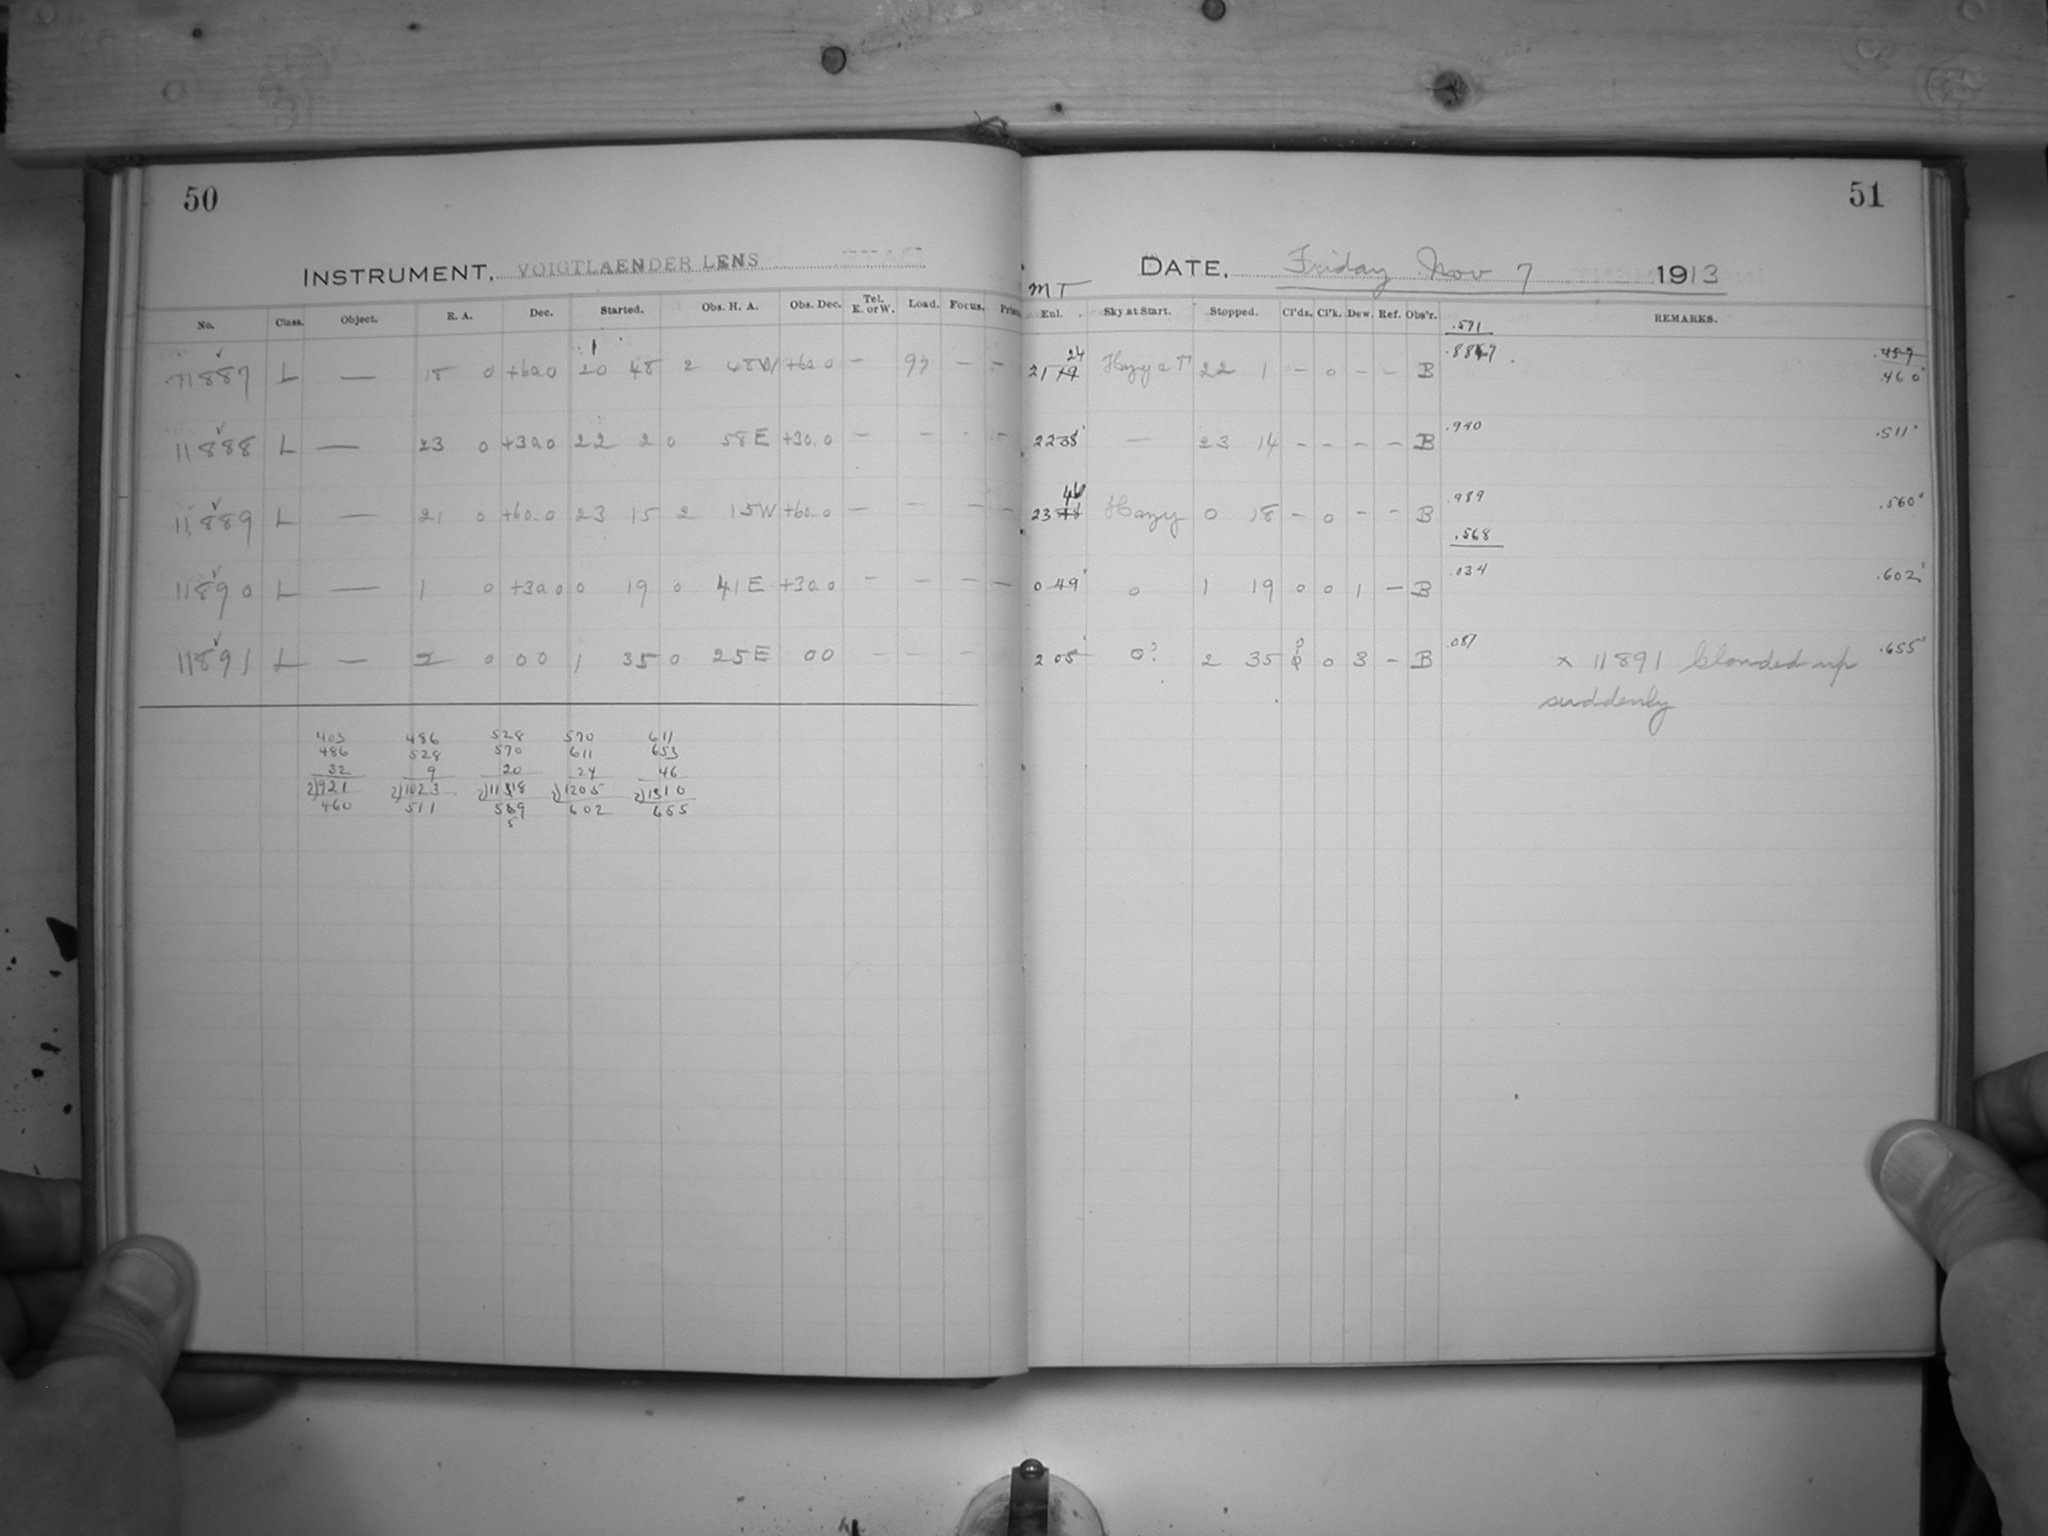 50
51
INSTRUMENT, VOIGTLAENDER LENS
DATE, Friday Nov 7 1913
MT
No. Class. Object. R. A. Dec. Started. Obs. H. A. Obs. Dec. Tel. E. or W. Load. Focus. Enl. Sky at Start. Stopped. Cl'ds. Cl'k. Dew. Ref. Obs'r. REMARKS.
.571
11887 L — 18 0 +60 0 20 48 2 48W +60 0 — 97 — — 21 24 Hazy 22 1 – 0 – – B .457 .460
11888 L — 23 0 +30 0 22 2 0 58 E +30.0 — – – 22 38 — 23 14 – – – – B .940 .511
11889 L — 21 0 +60.0 23 15 2 15W +60.0 — — — — 23 46 Hazy 0 18 – 0 – – B .989 .560
.568
11890 L — 1 0 +30 0 0 19 0 41 E +30 0 – – — — 0 49 0 1 19 0 0 1 – B .034 .602
11891 L — 2 0 00 1 35 0 25 E 00 – – – – 2 05 0? 2 35 ? 0 3 – B .087 x 11891 Clouded up .655
suddenly
403 486 528 570 611
486 528 570 611 653
32 9 20 24 46
2)921 2)1023 2)1118 2)1205 2)1310
460 511 559 602 655